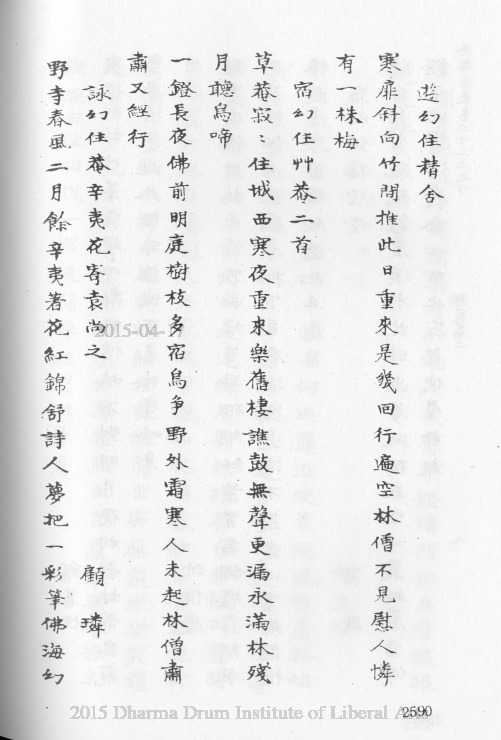 遊幻住精舍
寒扉斜向竹間推此日重來是幾回行遍空林僧不見慰人憐
有一株梅
宿幻住艸菴二首
草菴寂〻住城西寒夜重來樂舊棲譙鼓無聲更漏永滿林殘
月聽烏啼
一鐙長夜佛前明庭樹枝多宿鳥争野外霜寒人未起林僧肅
肅又經行
詠幻住菴辛夷花寄袁尚之
顧璘
野寺春風二月餘辛夷著花紅錦舒詩人夢把一彩筆佛海幻
2015-04-1
2590
2015 Dharma Drum Institute of Liberal A